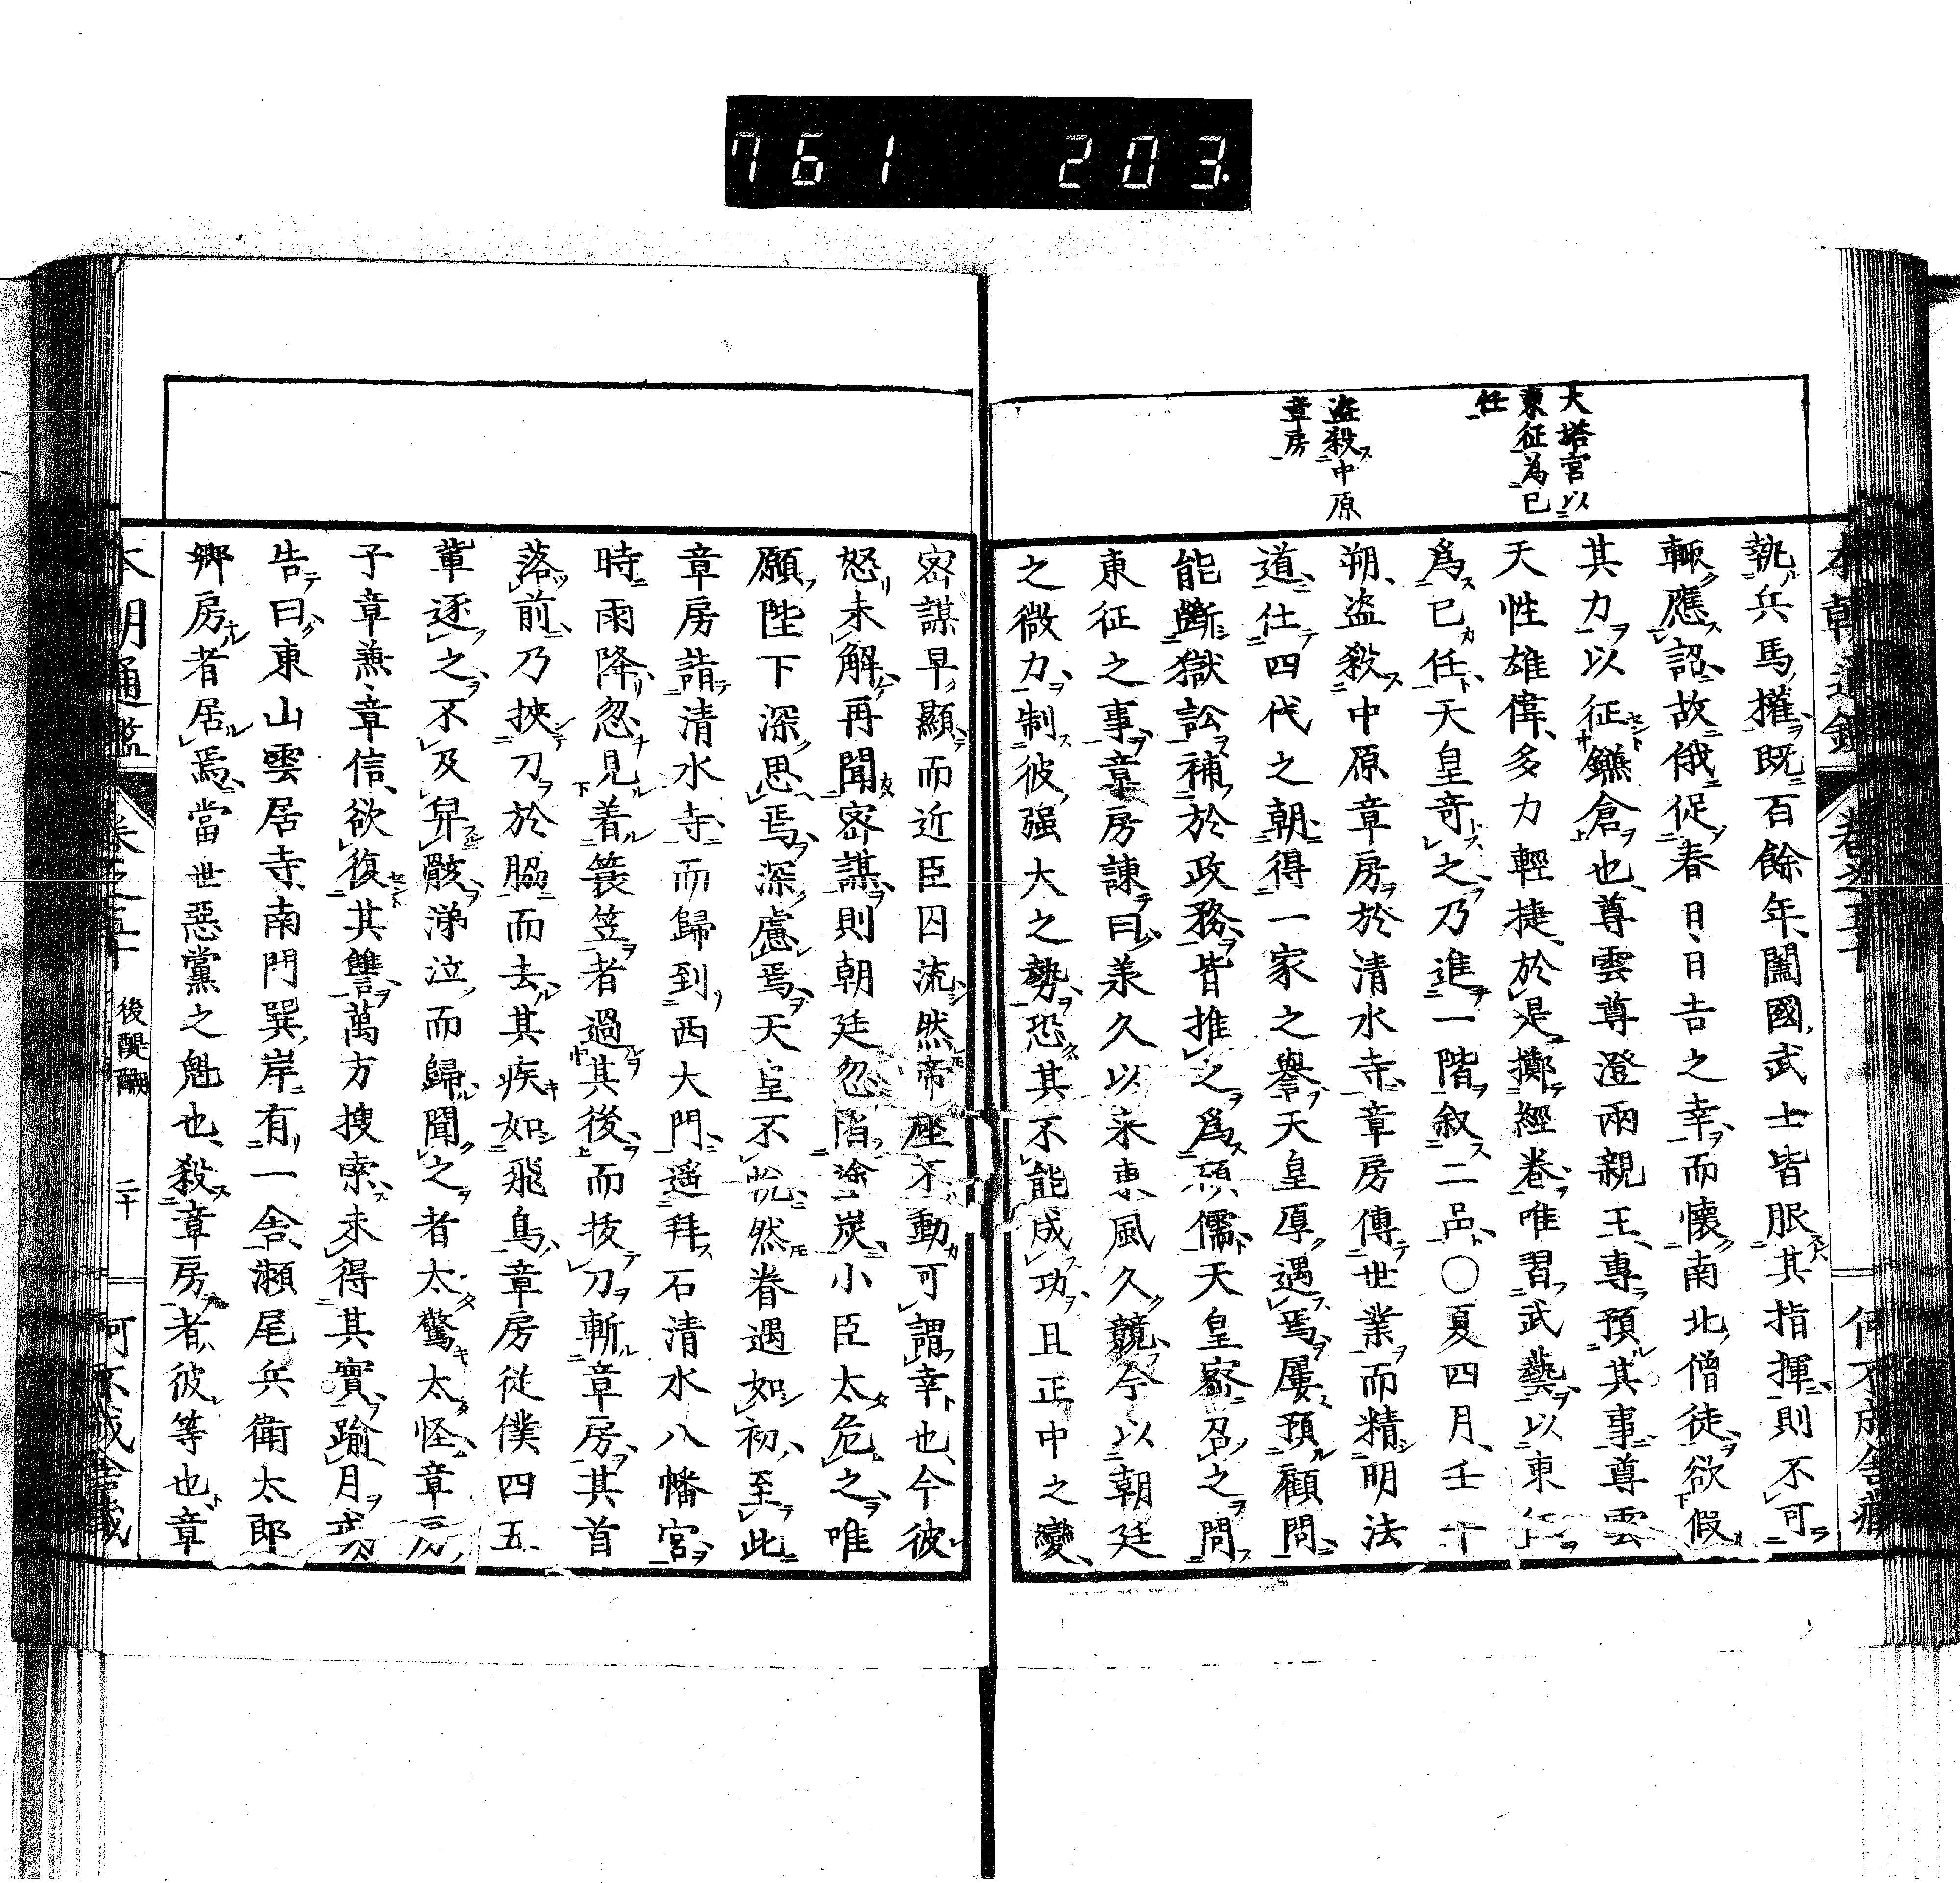 761 203.
大塔宮以
東征為己
任
盗殺中原
章房
執兵馬權既百餘年闔國武士皆服其指揮則不可
輙應詔故俄促春日日吉之幸而懐南北僧徒欲假
其力以征鎌倉也尊雲尊澄兩親王專預其事尊雲
天性雄偉多力輕捷於是擲經卷唯習武藝以東征
爲己任天皇奇之乃進一階叙二品〇夏四月壬
朔盗殺中原章房於清水寺章房傳世業而精明法
道仕四代之朝得一家之譽天皇厚遇焉屢預顧問
能斷獄訟補於政務皆推之爲碩儒天皇密召之問
東征之事章房諌曰承久以来東風久競今以朝廷
之微力制彼强大之勢恐其不能成功且正中之變
密謀早顯而近臣囚流然帝座不動可謂幸也今彼
怒未解再聞密謀則朝廷忽陷塗炭小臣太危之唯
願陛下深思焉深慮焉天皇不悦然眷遇如初至此
章房詣清水寺而歸到西大門遥拜石清水八幡宮
時雨降忽見着簑笠者過其後而抜刀斬章房其首
落前乃挾刀於脇而去其疾如飛鳥章房従僕四五
輩逐之不及舁骸涕泣而歸聞之者太驚太怪章房
子章兼章信欲復其讐萬方捜索未得其實踰月或
告曰東山雲居寺南門巽岸有一舎瀬尾兵衛太郎
郷房者居焉當世惡黨之魁也殺章房者彼等也章
本朝通鑑 卷之五十 後醍醐 二十 何不成舎藏